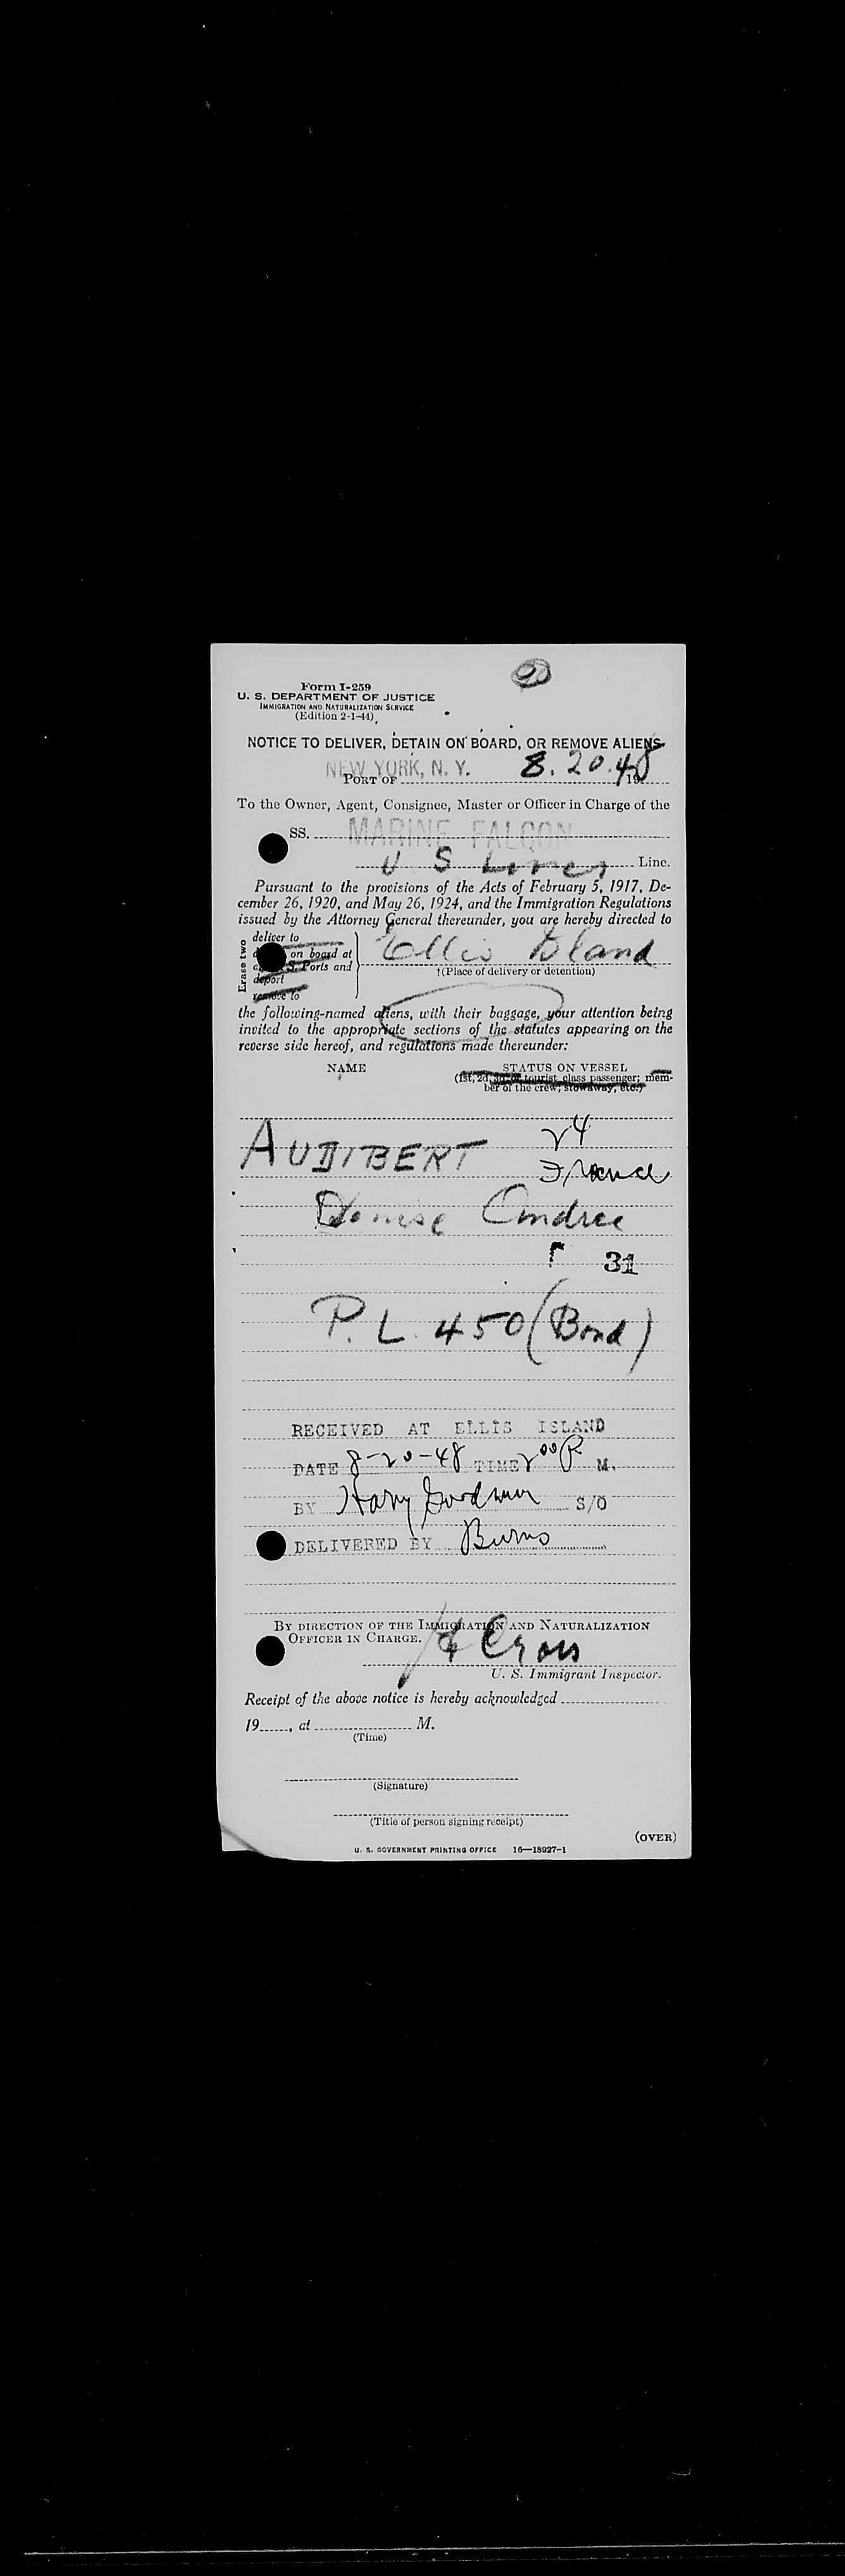 Form I-259
U. S. DEPARTMENT OF JUSTICE
IMMIGRATION AND NATURALIZATION SERVICE
(Edition 2-1-44)
NOTICE TO DELIVER, DETAIN ON BOARD, OR REMOVE ALIENS
NEW YORK, N. Y. 8.20.48
PORT OF 19
To the Owner, Agent, Consignee, Master or Officer in Charge of the
SS. MARINE FALCON
U S Lines Line.
Pursuant to the provisions of the Acts of February 5, 1917, De-
cember 26, 1920, and May 26, 1924, and the Immigration Regulations
issued by the Attorney General thereunder, you are hereby directed to
Erase two
deliver to
on board at
Ports and
deport
remove to
Ellis Island
†(Place of delivery or detention)
the following-named aliens, with their baggage, your attention being
invited to the appropriate sections of the statutes appearing on the
reverse side hereof, and regulations made thereunder:
NAME STATUS ON VESSEL
(1st, 2d, 3d, or tourist class passenger; mem-
ber of the crew, stowaway, etc.)
AUDIBERT 24
France
Denise Andree
31
P.L. 450 (Bond)
RECEIVED AT ELLIS ISLAND
DATE 8-20-48 TIME 2 00 P M.
BY Harry Goodman S/O
DELIVERED BY Burns
BY DIRECTION OF THE IMMIGRATION AND NATURALIZATION
OFFICER IN CHARGE.
U. S. Immigrant Inspector.
Receipt of the above notice is hereby acknowledged
19 , at M.
(Time)
(Signature)
(Title of person signing receipt)
(OVER)
U. S. GOVERNMENT PRINTING OFFICE 16—18927-1